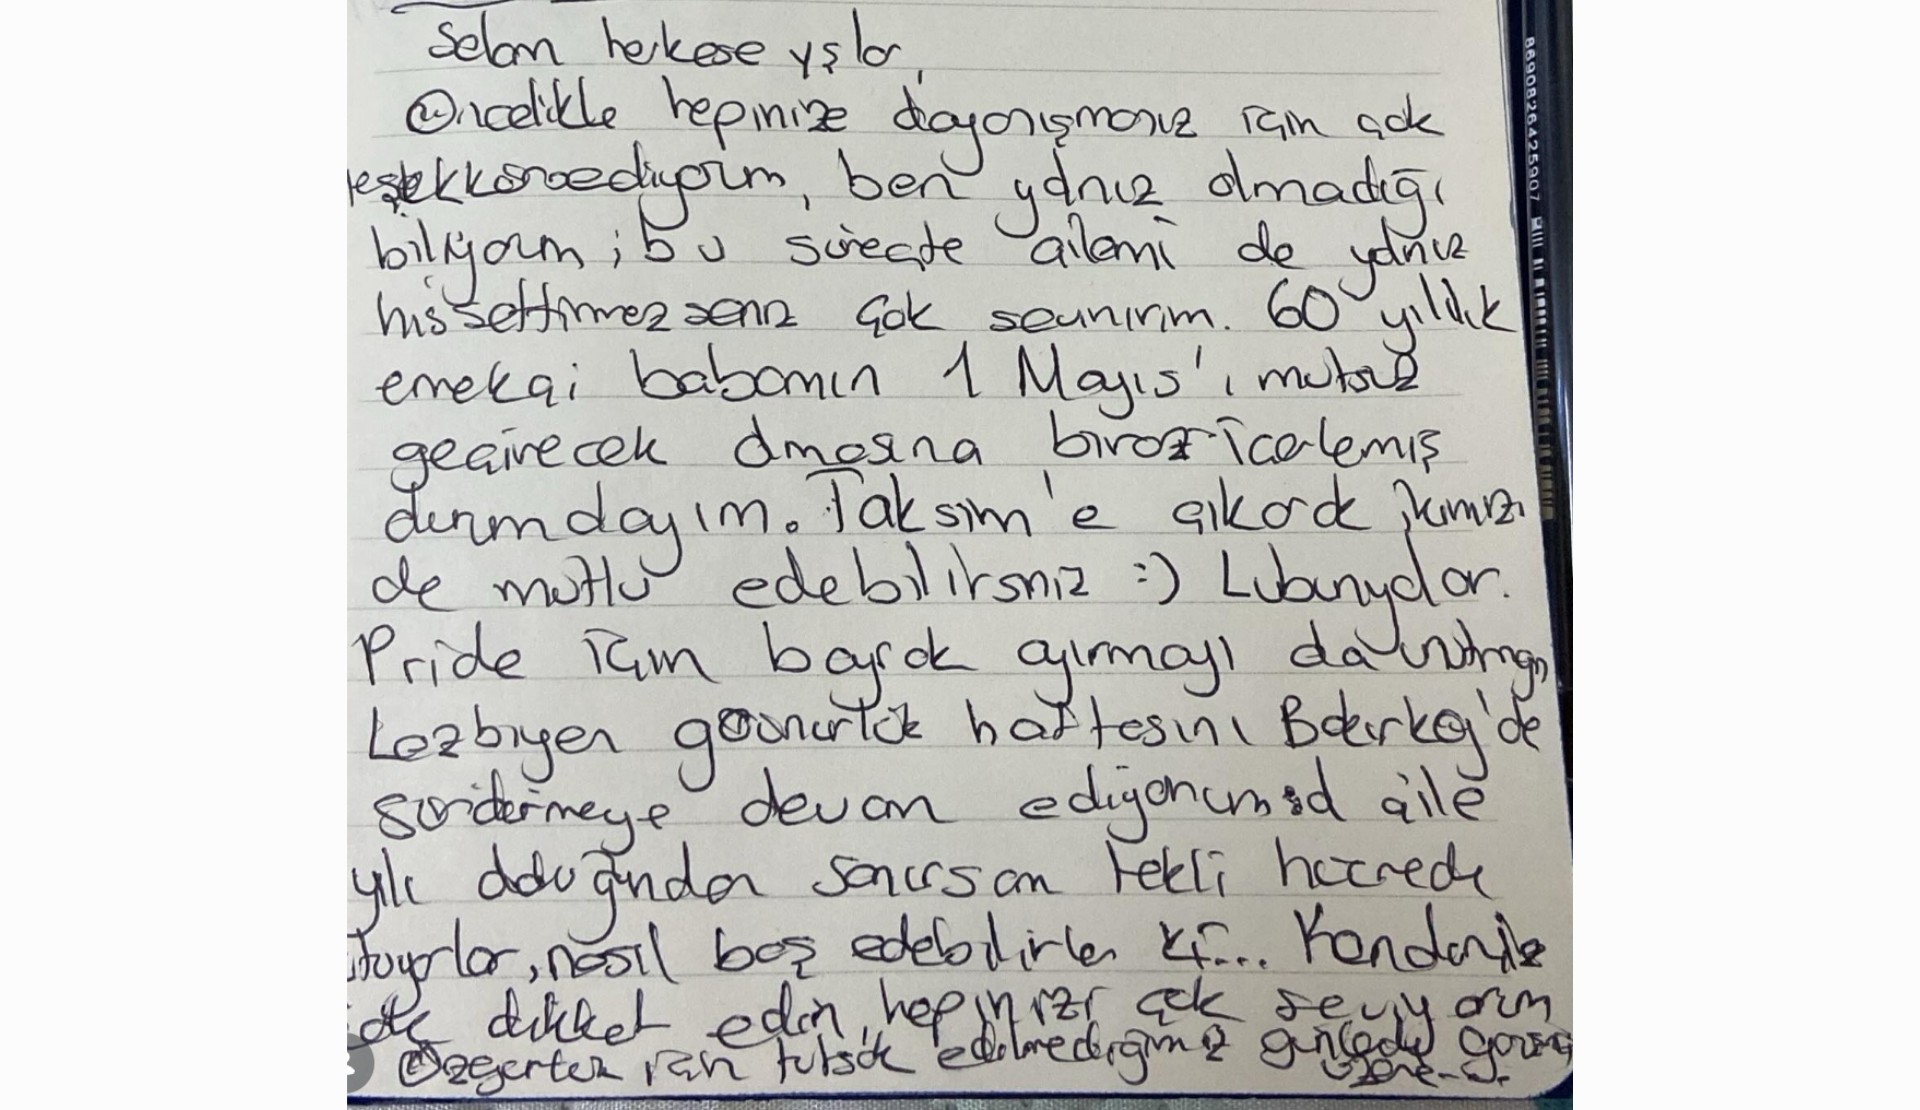 Selam herkese yşlar,
Öncelikle hepinize dayanışmanız için çok
teşekkür ediyorum, ben yalnız olmadığı
biliyorum; bu süreçte ailemi de yalnız
hissettirmezseniz çok sevinirim. 60 yıllık
emekçi babamın 1 Mayıs'ı mutsuz
geçirecek olmasına biraz icerlemiş
durumdayım. Taksim'e çıkarak ikimizi
de mutlu edebilirsniz :) Lubunyalar.
Pride için bayrak ayırmayı da unutmayın
Lezbiyen görünürlük haftasını Bakırköy'de
sürdürmeye devam ediyorum aile
yılı olduğundan sanırsam tekli hücrede
tutuyorlar, nasıl baş edebilirler ki... Kendinize
de dikkat edin, hepinizi çok seviyorum
Özgürken için tutsak edilmediğimiz günlerde
8690826425907